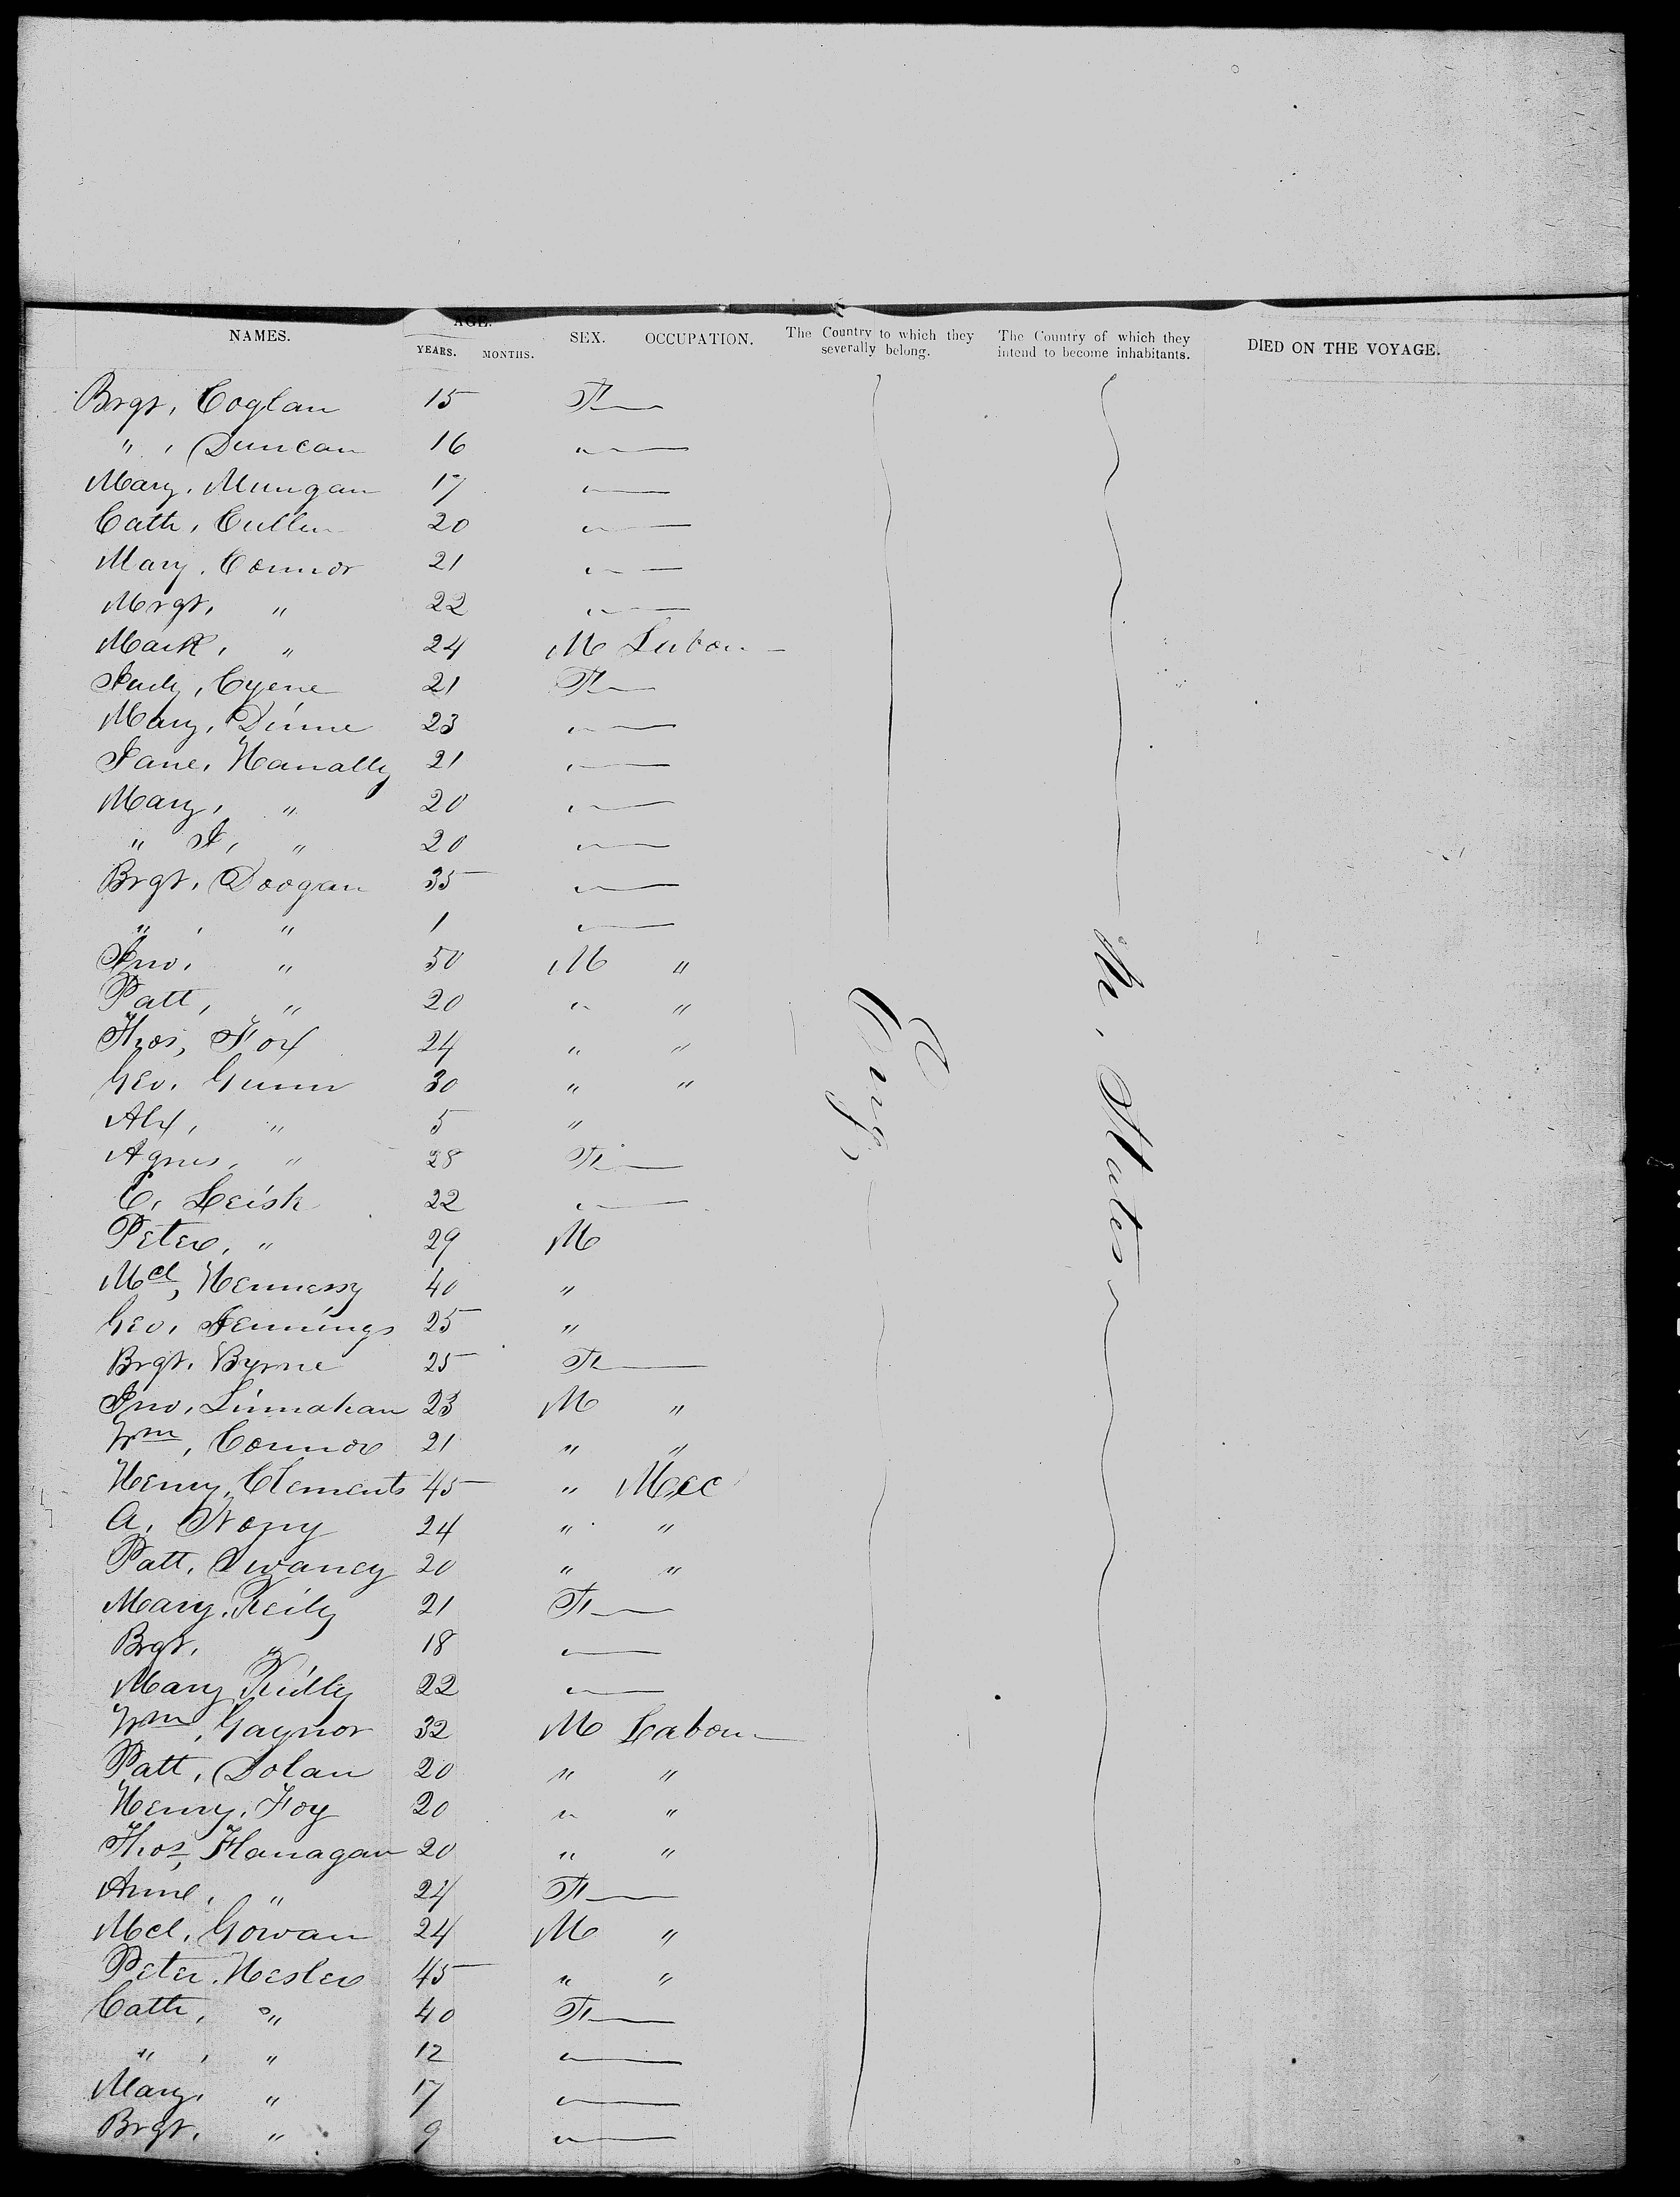 NAMES. AGE. YEARS. MONTHS. SEX. OCCUPATION. The Country to which they severally belong. The Country of which they intend to become inhabitants. DIED ON THE VOYAGE.
Brgt, Coglan 15 F
" , Duncan 16 "
Mary, Mungan 17 "
Cath, Cullen 20 "
Mary, Connor 21 "
Mrgt, " 22 "
Mark, " 24 M Labou
Judy, Cyene 21 F
Mary, Dinne 23 "
Jane, Hanally 21 "
Mary, " 20 "
" J, " 20 "
Brgt, Doogan 35 "
" , " 1 "
Jno, " 50 M "
Patt, " 20 " "
Thos, Fox 24 " "
Geo, Gunn 30 " "
Alx, " 5 "
Agnes, " 28 F
C, Leish 22 "
Peter, " 29 M
Mcl, Hennessy 40 "
Geo, Jennings 25 "
Brgt, Byrne 25 F
Jno, Linnahan 23 M "
Wm, Connor 21 " "
Henry, Clements 45 " Mec
A, 24 " "
Patt, Swaney 20 " "
Mary, Reily 21 F
Brgt, " 18 "
Mary Reilly 22 "
Wm, Gaynor 32 M Labou
Patt, Dolan 20 " "
Henry, Foy 20 " "
Thos, Flanagan 20 " "
Anne, " 24 F
Mcl, Gowan 24 M "
Peter, Hesler 45 " "
Cath, " 40 F
" , " 12 "
Mary, " 17 "
Brgt, " 9 "
States